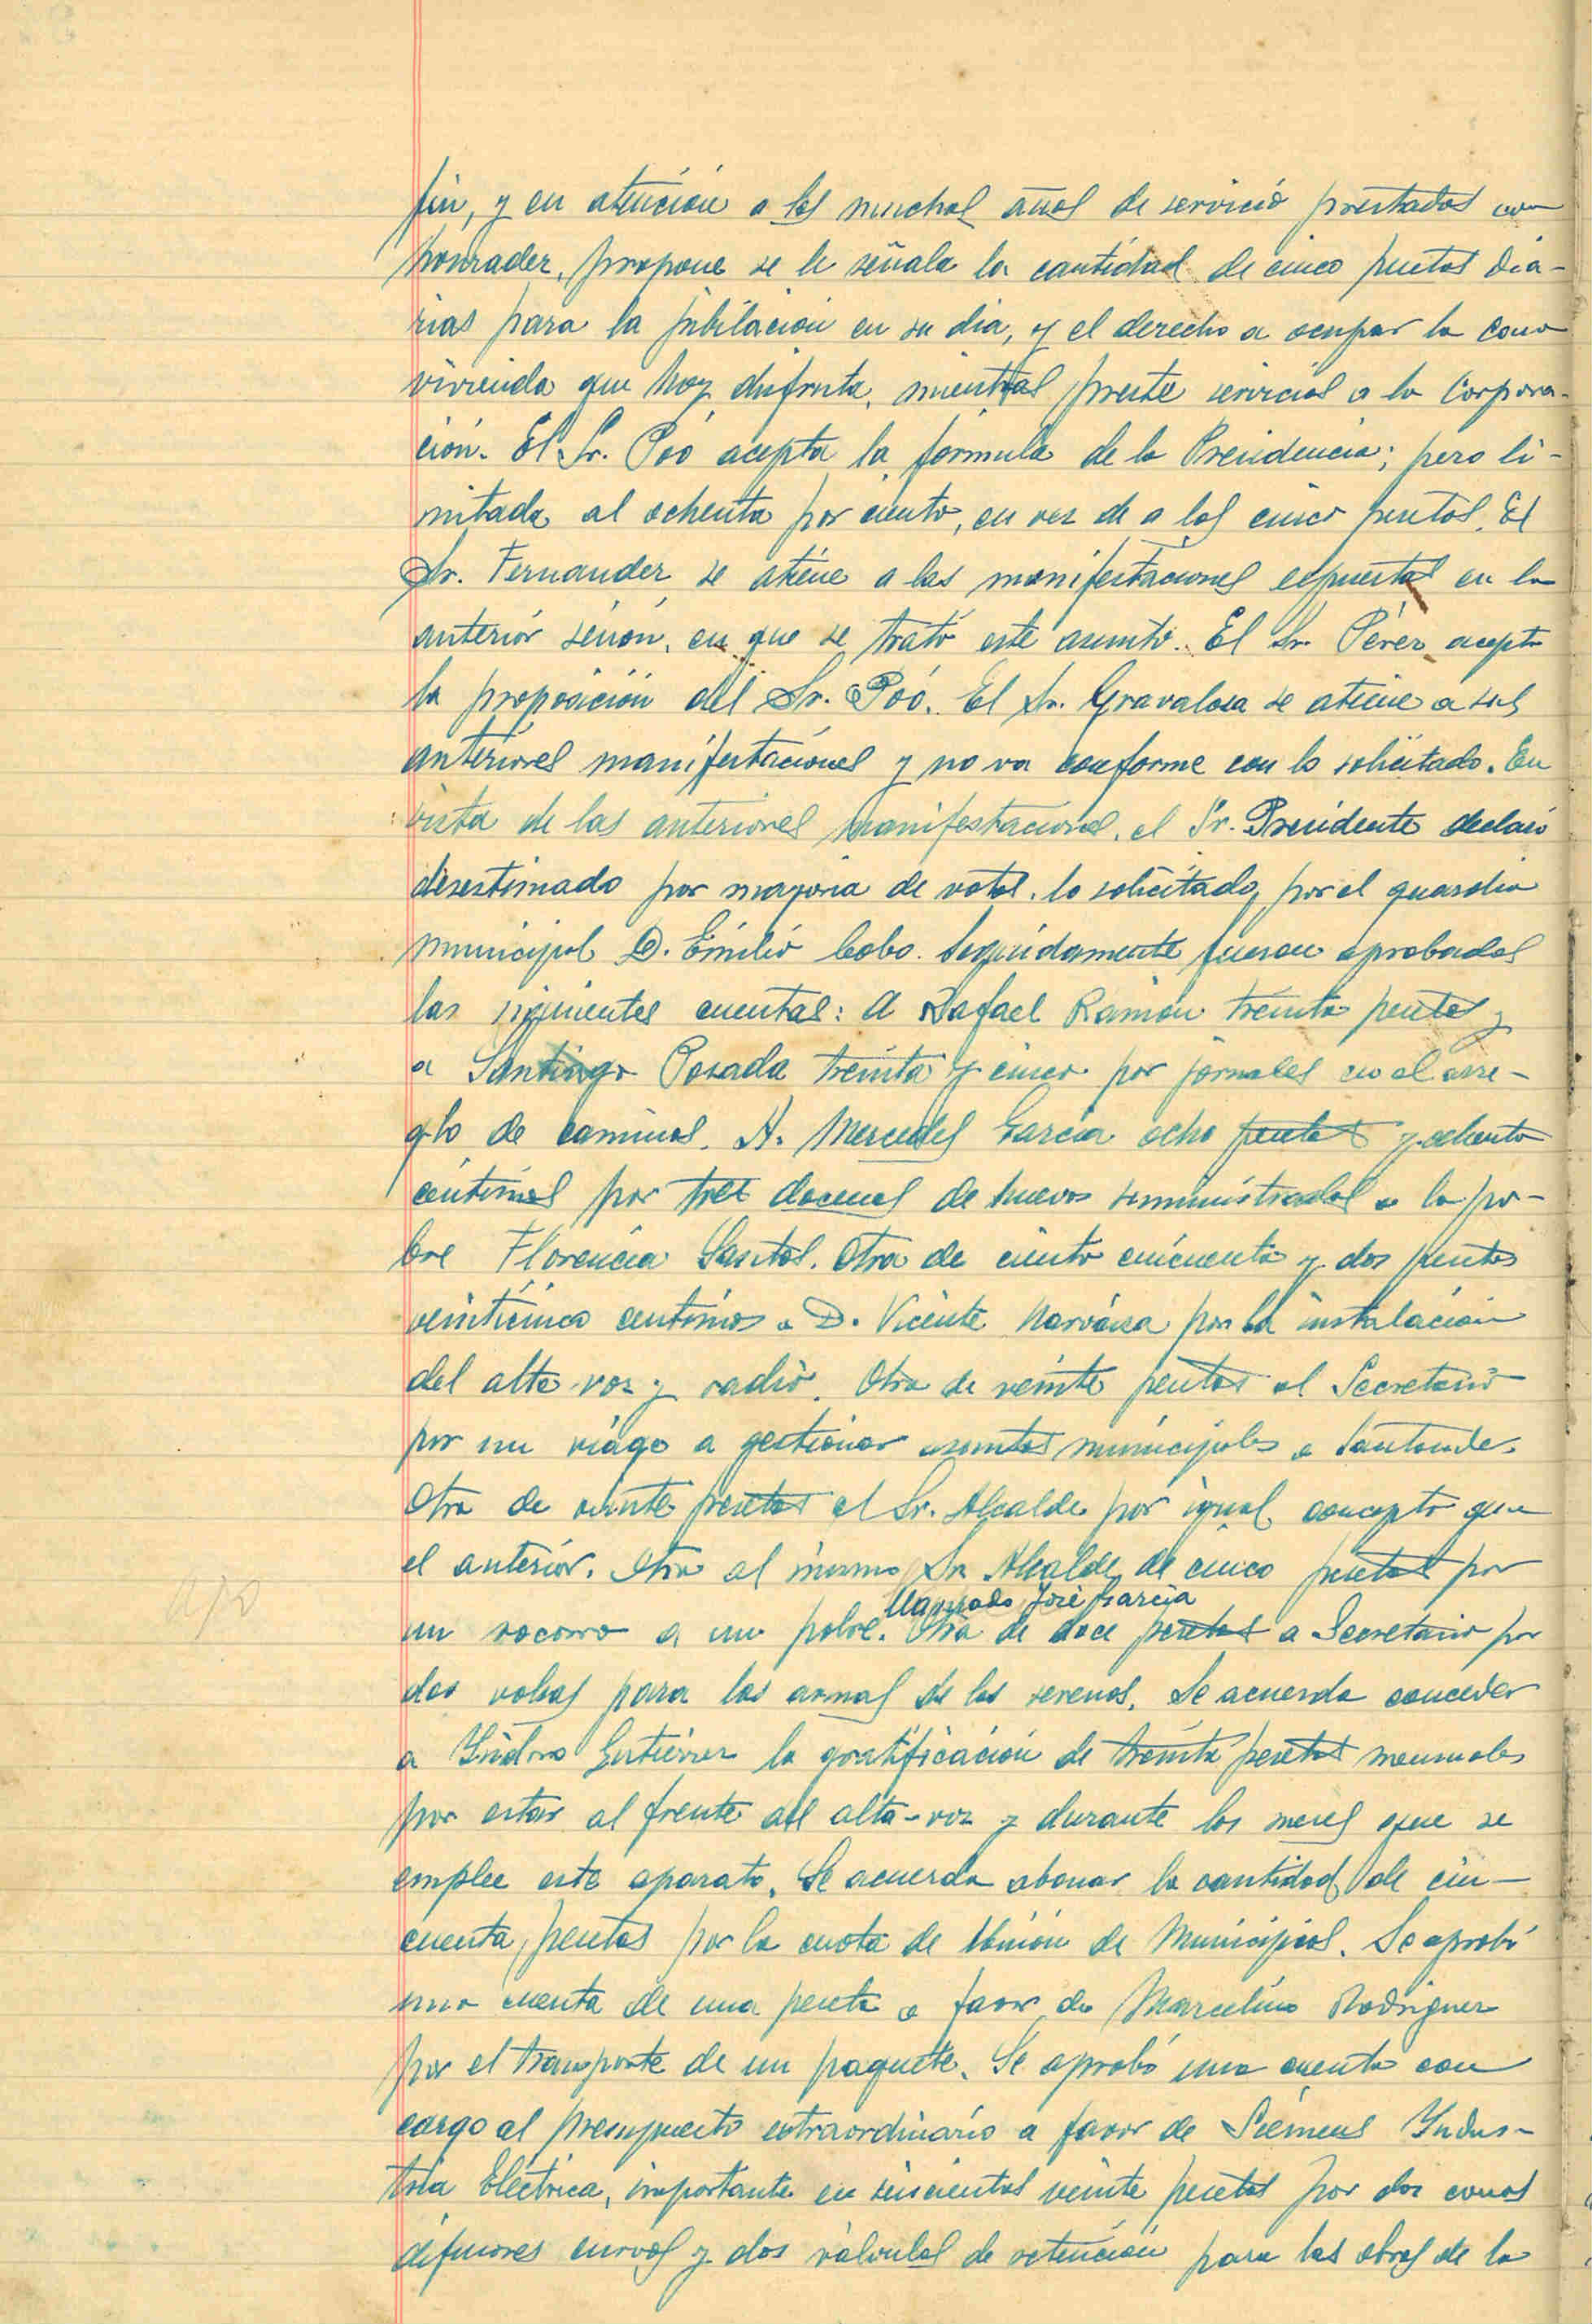 fin, y en atención a los muchos años de servicio prestados con
honradez, propone se le señale la cantidad de cinco pesetas dia-
rias para la jubilación en su dia, y el derecho a ocupar la casa
vivienda que hoy disfruta, mientras preste servicios a la Corpora-
ción. El Sr. Poó acepta la fórmula de la Presidencia; pero li-
mitada al ochenta por ciento, en vez de a las cinco pesetas. El
Sr. Fernandez se atiene a las manifestaciones expuestas en la
anterior sesión, en que se trató este asunto. El Sr. Pérez acepta
la proposición del Sr. Poó. El Sr. Gravalosa se atiene a sus
anteriores manifestaciones y no va conforme con lo solicitado. En
vista de las anteriores manifestaciones, el Sr. Presidente declaró
desestimado por mayoria de votos, lo solicitado, por el guardia
municipal D. Emilio Cobo. Seguidamente fueron aprobadas
las siguientes cuentas: A Rafael Ramón treinta pesetas y
a Santiago Posada treinta y cinco por jornales en el arre-
glo de caminos. A Mercedes Garcia ocho pesetas y ochenta
centimos por tres docenas de huevos suministrados a la po-
bre Florencia Santos. Otra de ciento cincuenta y dos pesetas
veinticinco centimos a D. Vicente por la instalación
del alta-voz y radio. Otra de veinte pesetas al Secretario
por un viage a gestionar asuntos municipales a Santander.
Otra de veinte pesetas al Sr. Alcalde por igual concepto que
el anterior. Otra al mismo Sr. Alcalde de cinco pesetas por
llamado José Garcia
un socorro a un pobre. Otra de doce pesetas a Secretario por
dos para las armas de los serenos. Se acuerda conceder
a Ysidro Gutiérrez la gratificación de treinta pesetas mensuales
por estar al frente del alta-voz y durante los meses que se
emplee este aparato. Se acuerda abonar la cantidad de cin-
cuenta pesetas por la cuota de Unión de Municipios. Se aprobó
una cuenta de una peseta a favor de Marcelino Rodriguez
por el transporte de un paquete. Se aprobó una cuenta con
cargo al presupuesto extraordinario a favor de Siemens Yndus-
tria Eléctrica, importante en seiscientas veinte pesetas por dos conos
difusores curvos y dos válvulas de retención para las obras de la